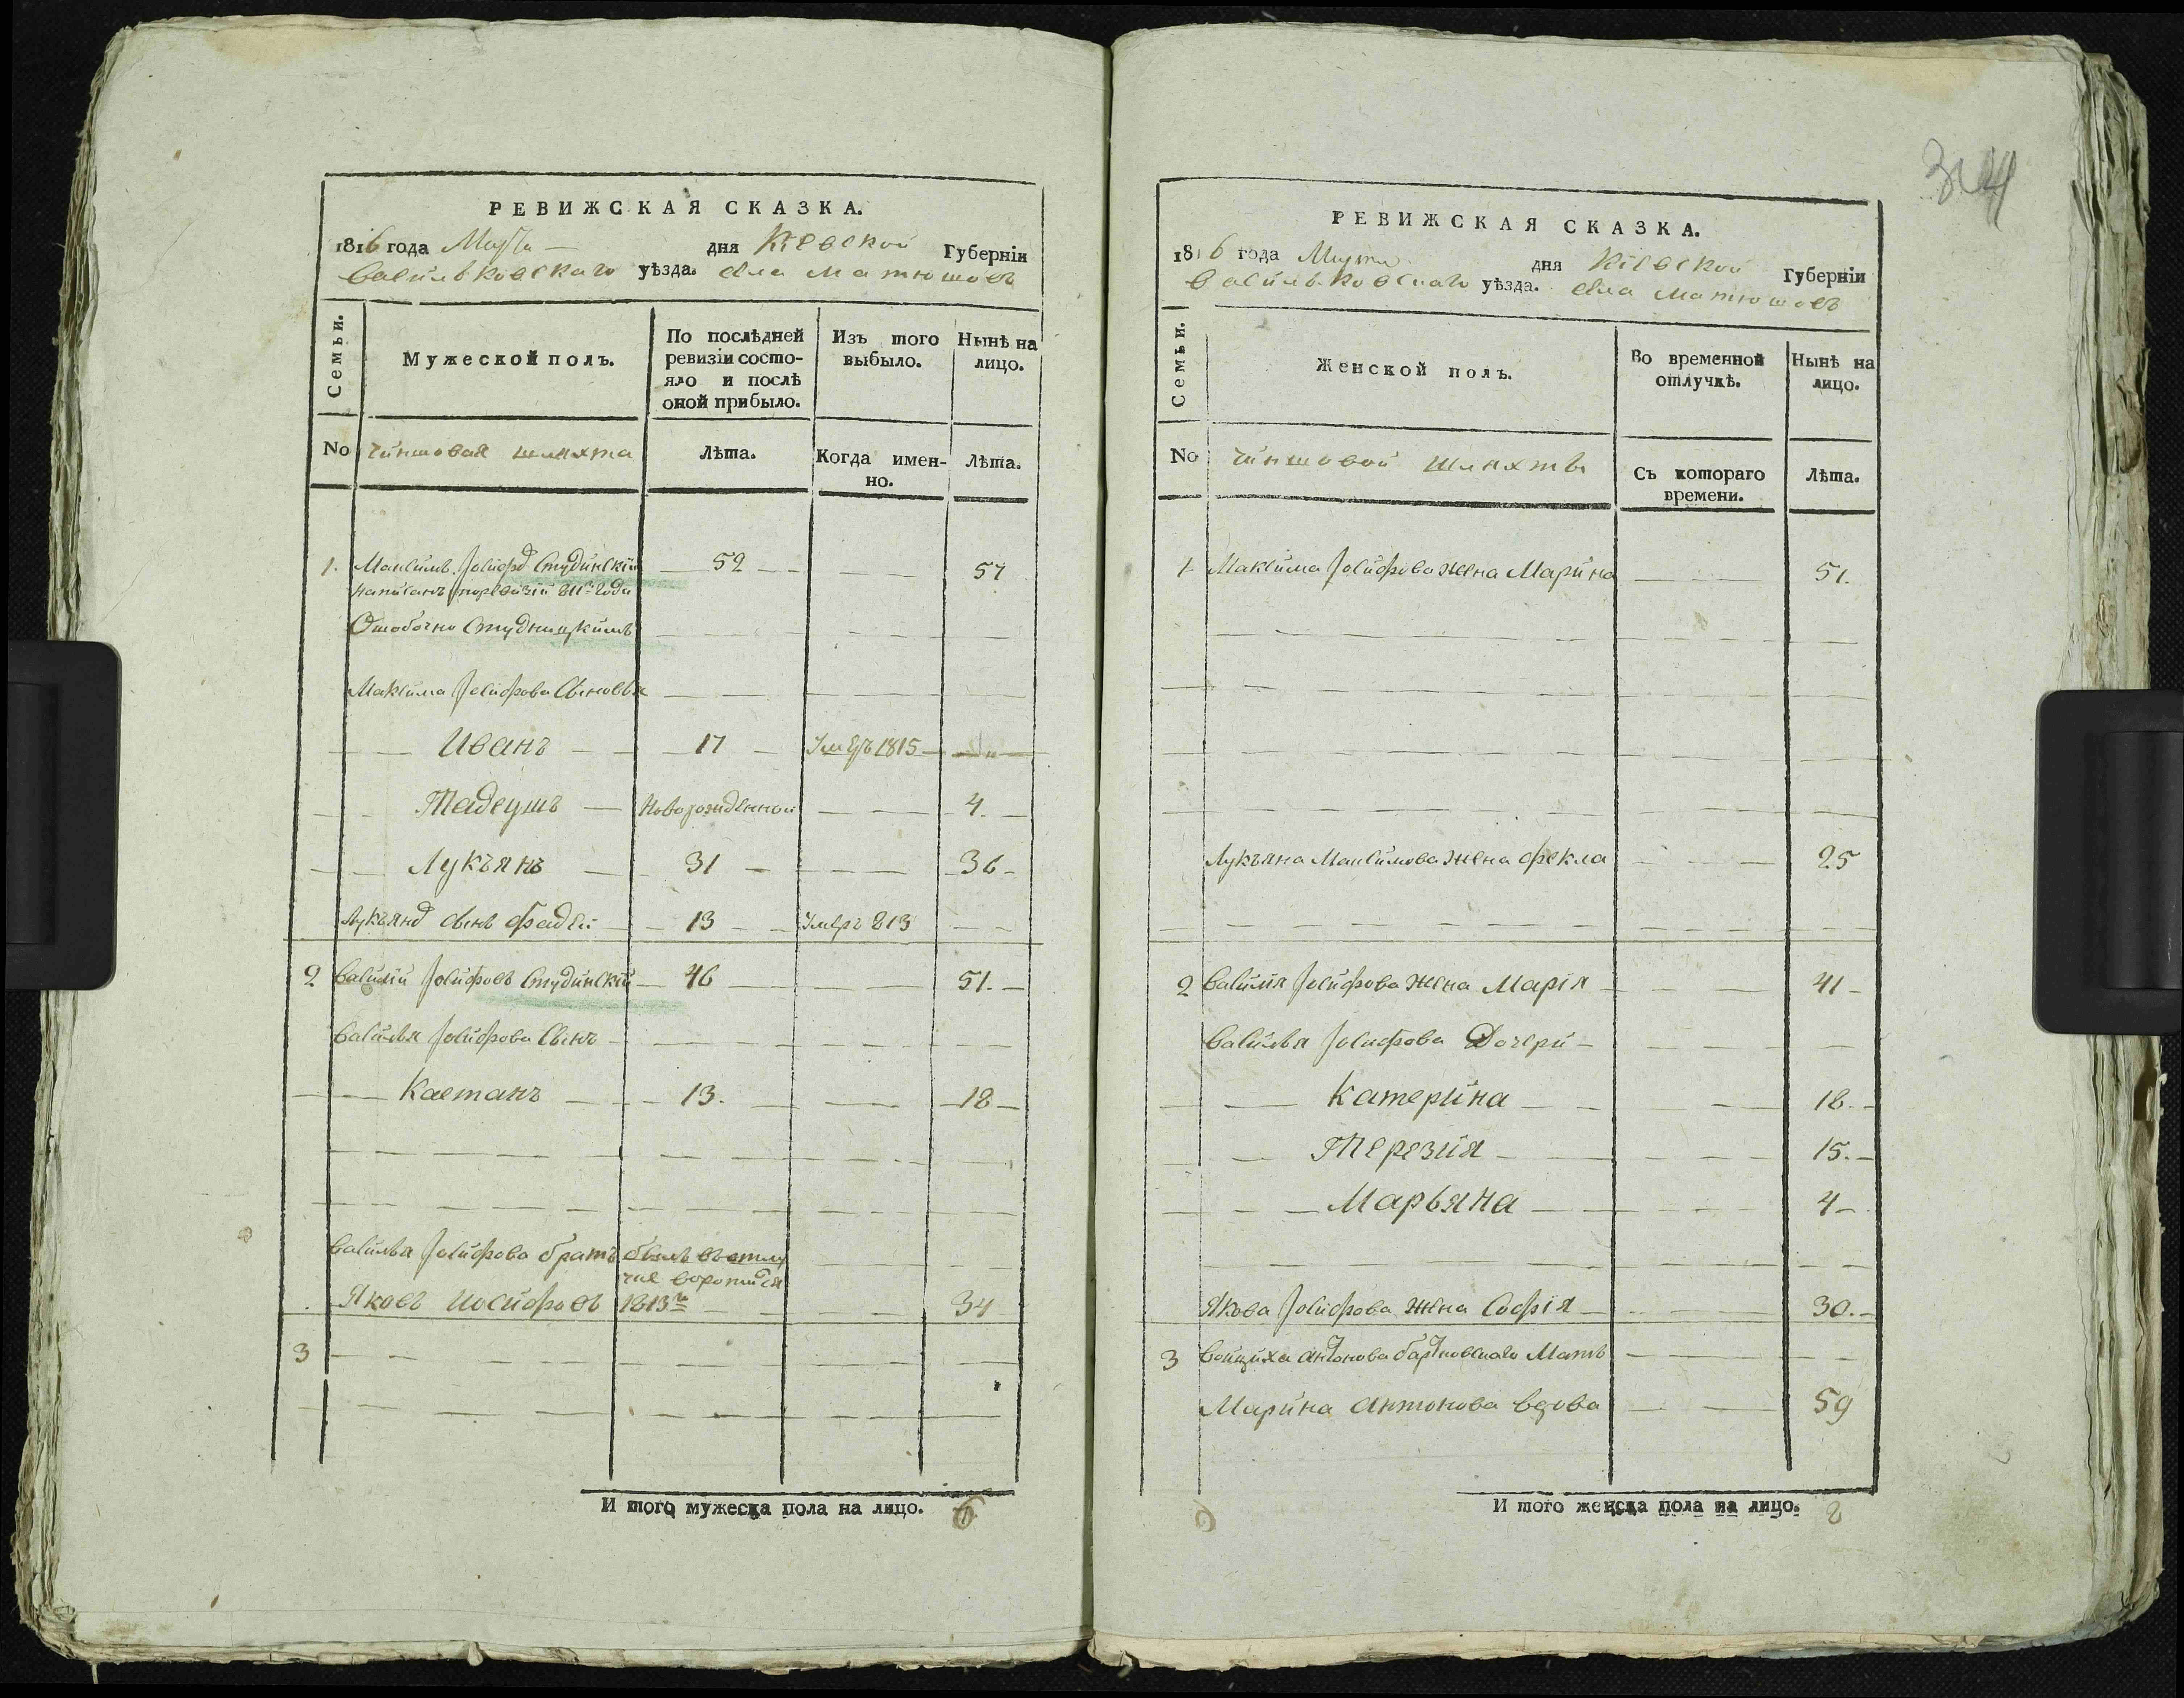 РЕВИЖСКАЯ СКАЗКА.
1816 года Марта дня Кіевской Губерніи
Васильковскаго уѣзда. села Матюшовъ
Семьи. Мужеской полъ. По послѣдней ревизіи состояло и послѣ оной прибыло. Изъ того выбыло. Нынѣ на лицо.
No чиншовая шляхта Лѣта. Когда именно. Лѣта.
1. Максимъ Іосифов Студинскій 52 57
написанъ по ревизіи 811 года
Ошибочно Студницкимъ
Максима Іосифова Сыновья
Иванъ 17 Умеръ 1815
Тадеушъ Новорожденной 4.
Лукъянъ 31 36
Лукъяна сынъ Фадей 13 Умеръ 813
2 Василій Іосифовъ Студинскій 46 51.
Василья Іосифова Сынъ
Каетанъ 13. 18
Василья Іосифова братъ былъ въ отлу
чке воротился
Яковъ Иосифовъ 1813го 34
3
И того мужеска пола на лицо. 6
314
РЕВИЖСКАЯ СКАЗКА.
1816 года Марта дня Кіевской Губерніи
Васильковскаго уѣзда. села Матюшовъ
Семьи. Женской полъ. Во временной отлучкѣ. Нынѣ на лицо.
No чиншовой шляхты Съ котораго времени. Лѣта.
1 Максима Іосифова жена Марина 51.
Лукъяна Максимова жена Фекла 25
2 Василія Іосифова жена Марія 41
Василья Іосифова Дочери
Катерина 18.
Терезия 15.
Марьяна 4
Якова Іосифова жена Софія 30.
3 Войциха Антонова Мать
Марина Антонова вдова 59
И того женска пола на лицо. 8